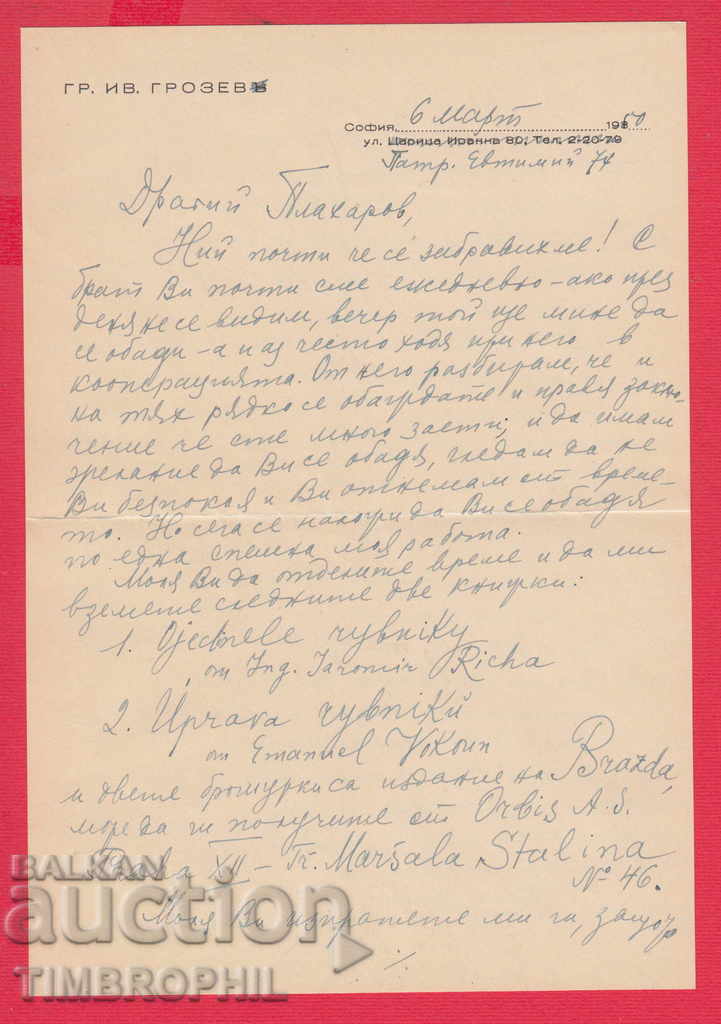 ГР. ИВ. ГРОЗЕВЪ
София, 6 Март 1950
ул. Царица Иоанна 80, Тел. 2-20-79
Патр. Евтимий 74
Драгий Плахаров,
Ний почти че се забравихме! С
брат Ви почти сме ежедневно - ако през
деня не се видим, вечер той ще мине да
се обади - а и аз често ходя при него в
кооперацията. От него разбирам, че и
на тях рядко се обаграждате и правя заклю-
чение че сте много заети; и да имам
желание да Ви се обадя, гледам да не
Ви безпокоя и Ви отнемам от време-
то. Но сега се наложи да Ви се обадя
по една спешна моя работа.
Моля Ви да отделите време и да ми
вземете следните две книжки:
1. rybniky
от Ing. Jaromir Richa
2. Uprava rybniků
от Emanuel Vokoun
и двете брошурки са издание на Brazda,
може да ги получите от Orbis A.S.
Praha XII - Tř. Maršala Stalina
№ 46.
Моля Ви изпратете ми ги, защо
./.
BALKAN
auction
TIMBROPHIL